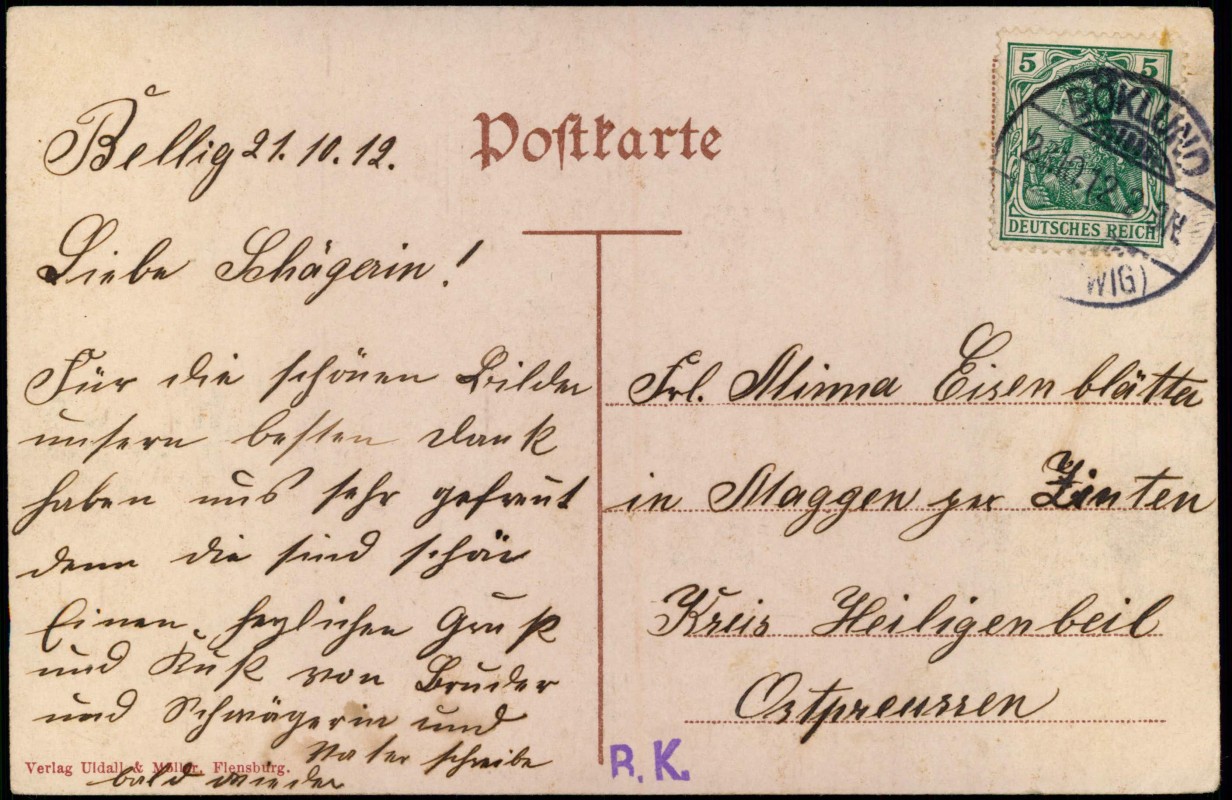 Postkarte
5 5
DEUTSCHES REICH
BÖKLUND
WIG)
Bellig 21. 10. 12.
Liebe Schägerin!
Für die schönen Bilder
unsern besten Dank
haben uns sehr gefreut
denn die sind schön
Einen herzlichen Gruß
und Kuß von Bruder
und Schwägerin und
Vater schreibe
bald wieder
Verlag Uldall & Möller, Flensburg.
Frl. Minna Eisenblätter
in Maggen per Zinten
Kreis Heiligenbeil
Ostpreussen
R. K.